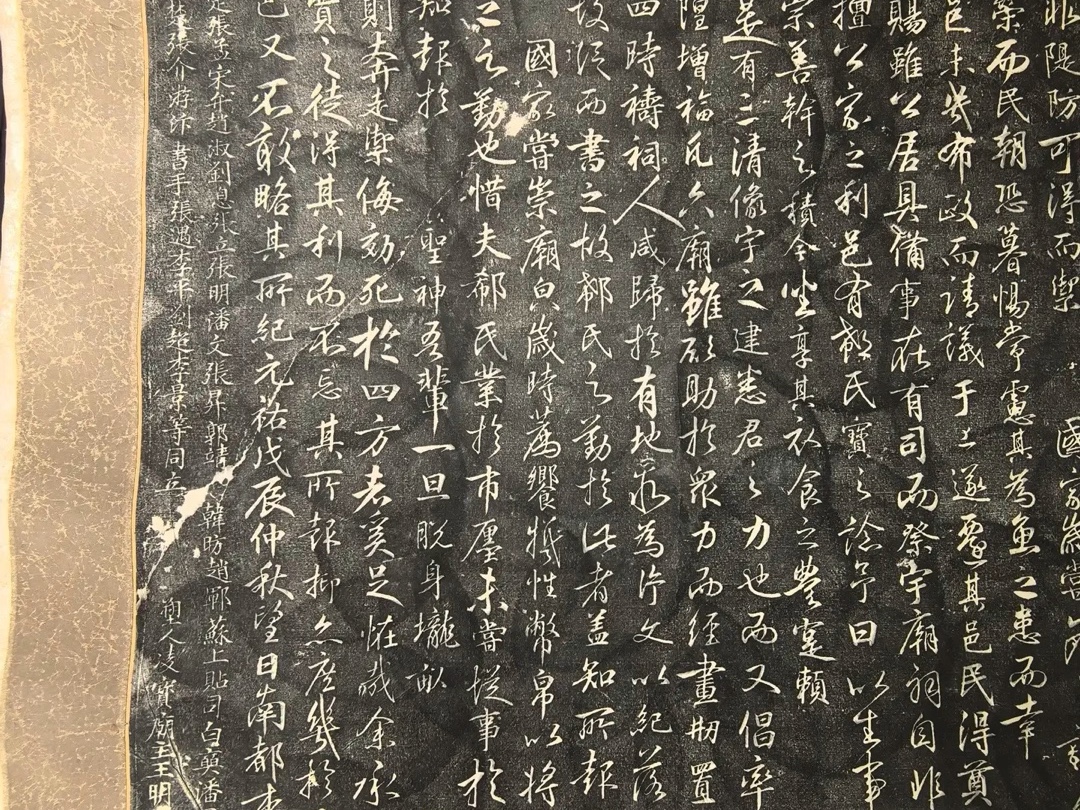 非隄防可得而禦　國家歲嘗
榮而民朝恐暮惕常慮其為魚之患而幸
邑未幾布政而請議于上遂遷其邑民得奠
賜雖公居具備事在有司而祭宇廟祠自非
擅公家之利邑有郝民寶之諗予曰以生事
宗善幹之積今坐享其衣食之豐寔賴
是有三清像宇之建悉君之力也而又倡率
隍增福凡六廟雖欲助於眾力而經畫刱置
四時禱祠人咸歸於有地眾為片文以紀落
故濱而書之故郝民之勤於此者蓋知所報
國家嘗崇廟皃歲時薦饗牴性幣帛以將
之之勤也惜夫郝民業於市廛未嘗從事於
知報於　聖神吾輩一旦脫身壠畝
則奔走禦侮効死於四方者美足恠哉余承
賞之徒得其利而不忘其所報抑亦庶幾
也又不敢略其所紀元祐戊辰仲秋望日南都李
張孟宋弁趙淑劉息張立張明潘文張昇郭靖韓昉趙鄆蘇上貼司白寅潘
張介游沛　書手張遇李平劉超李景等同立　塑人支寶廟主王明